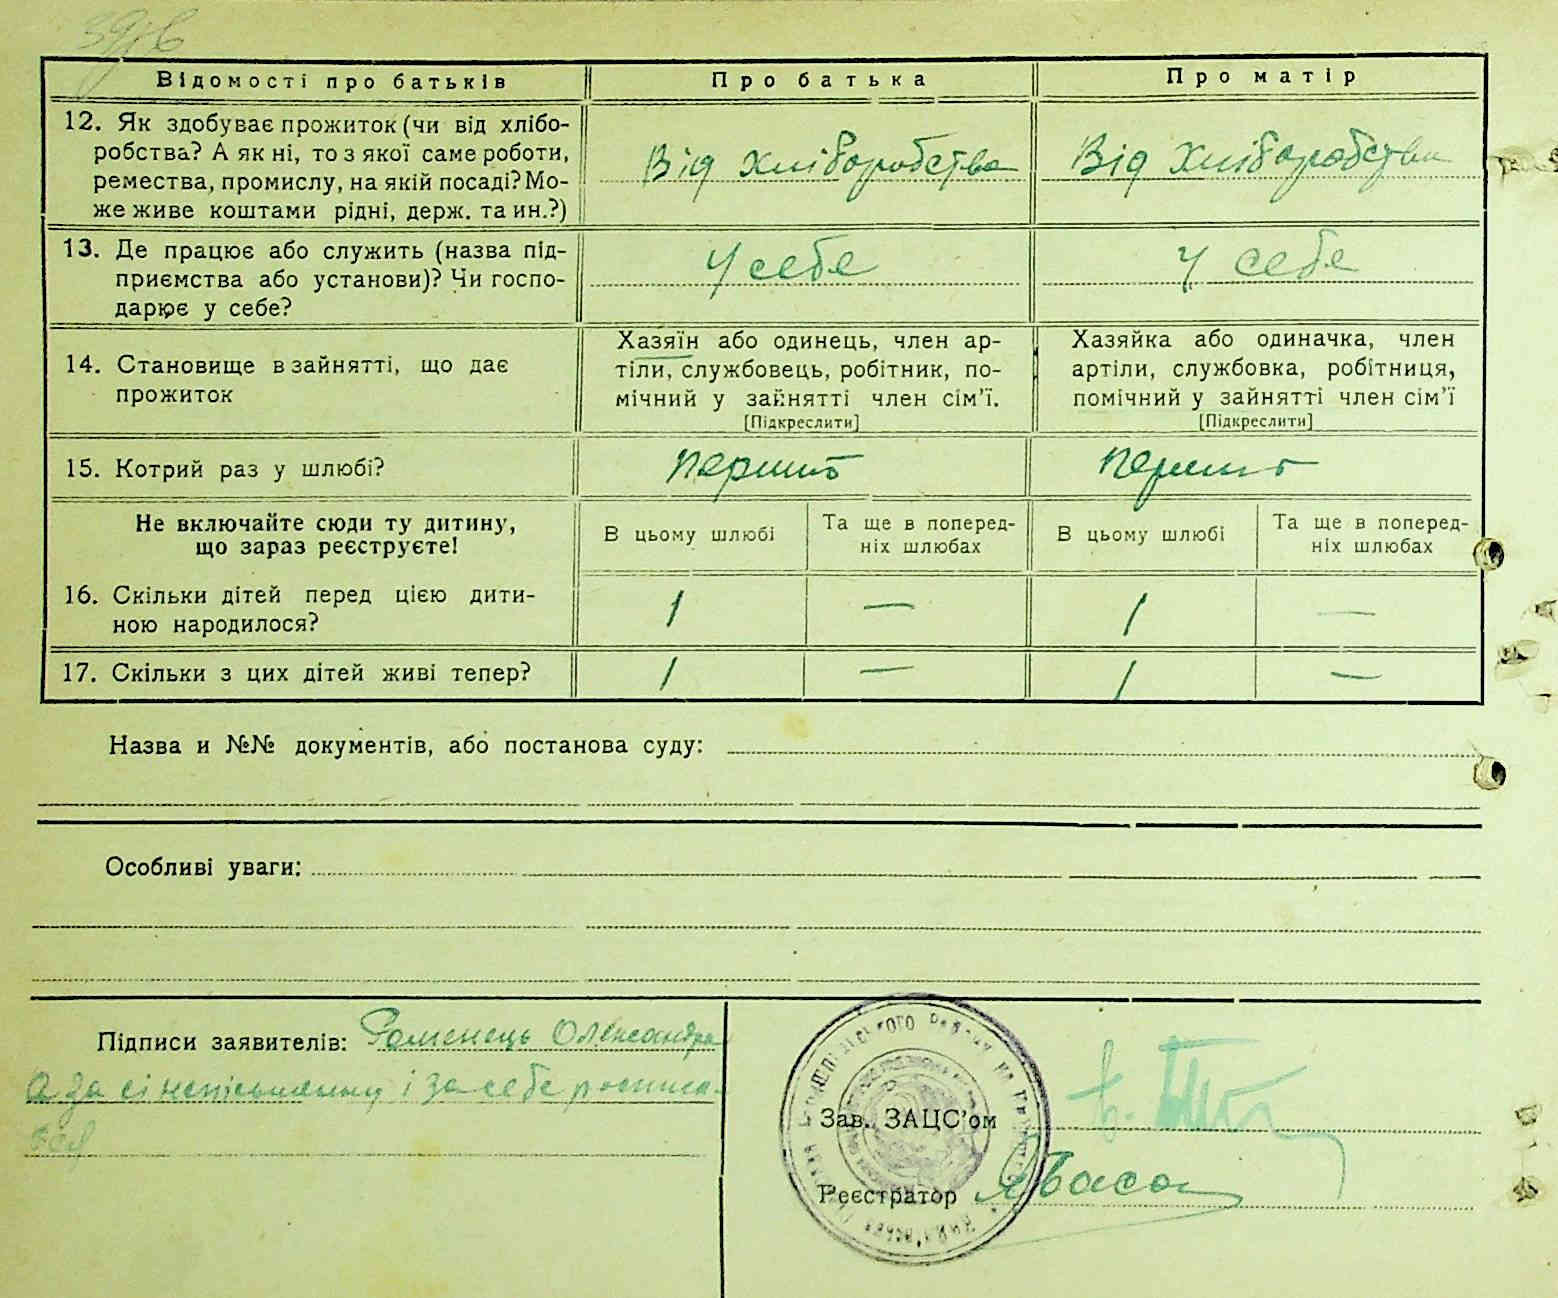 Відомості про батьків
Про батька
Про матір
12. Як здобуває прожиток (чи від хлібо-
робства? А як ні, то з якої саме роботи,
ремества, промислу, на якій посаді? Мо-
же живе коштами рідні, держ. та ин.?)
Від хліборобства
Від хліборобства
13. Де працює або служить (назва під-
приємства або установи)? Чи госпо-
дарює у себе?
У себе
У себе
14. Становище в зайнятті, що дає
прожиток
Хазяїн або одинець, член ар-
тіли, службовець, робітник, по-
мічний у зайнятті член сім'ї.
[Підкреслити]
Хазяйка або одиначка, член
артіли, службовка, робітниця,
помічний у зайнятті член сім'ї
[Підкреслити]
15. Котрий раз у шлюбі?
Не включайте сюди ту дитину,
що зараз реєструєте!
В цьому шлюбі
Та ще в поперед-
ніх шлюбах
В цьому шлюбі
Та ще в поперед-
ніх шлюбах
16. Скільки дітей перед цією дити-
ною народилося?
1
—
1
—
17. Скільки з цих дітей живі тепер?
1
—
1
—
Назва и №№ документів, або постанова суду:
Особливі уваги:
Підписи заявителів: Роменець Олександра
і за себе
Зав. ЗАЦС'ом
Реєстратор